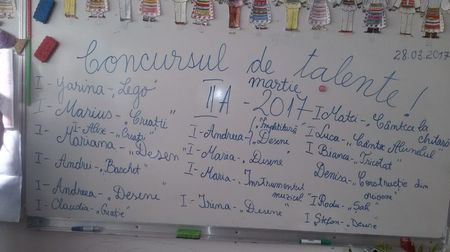 28.03.2017
Concursul de talente!
martie
IIA - 2017
I - Yarina - „Lego”
I - Marius - „Creații”
I - Alex - „Creații”
I - Mariana - „Desen”
I - Andrei - „Baschet”
I - Andreea - „Desene”
I - Claudia - „Creație”
I - Andreea - „Împletitură
Desene”
I - Maria - „Desene”
I - Maria - „Instrumentul
muzical”
I - Irina - „Desene”
I Mata - „Cântică la
chitară”
I Luca - „Cântec
I Bianca - „Tricotat”
Denisa - „Construcție din
origami”
I Radu - „Șah”
I Ștefan - „Desene